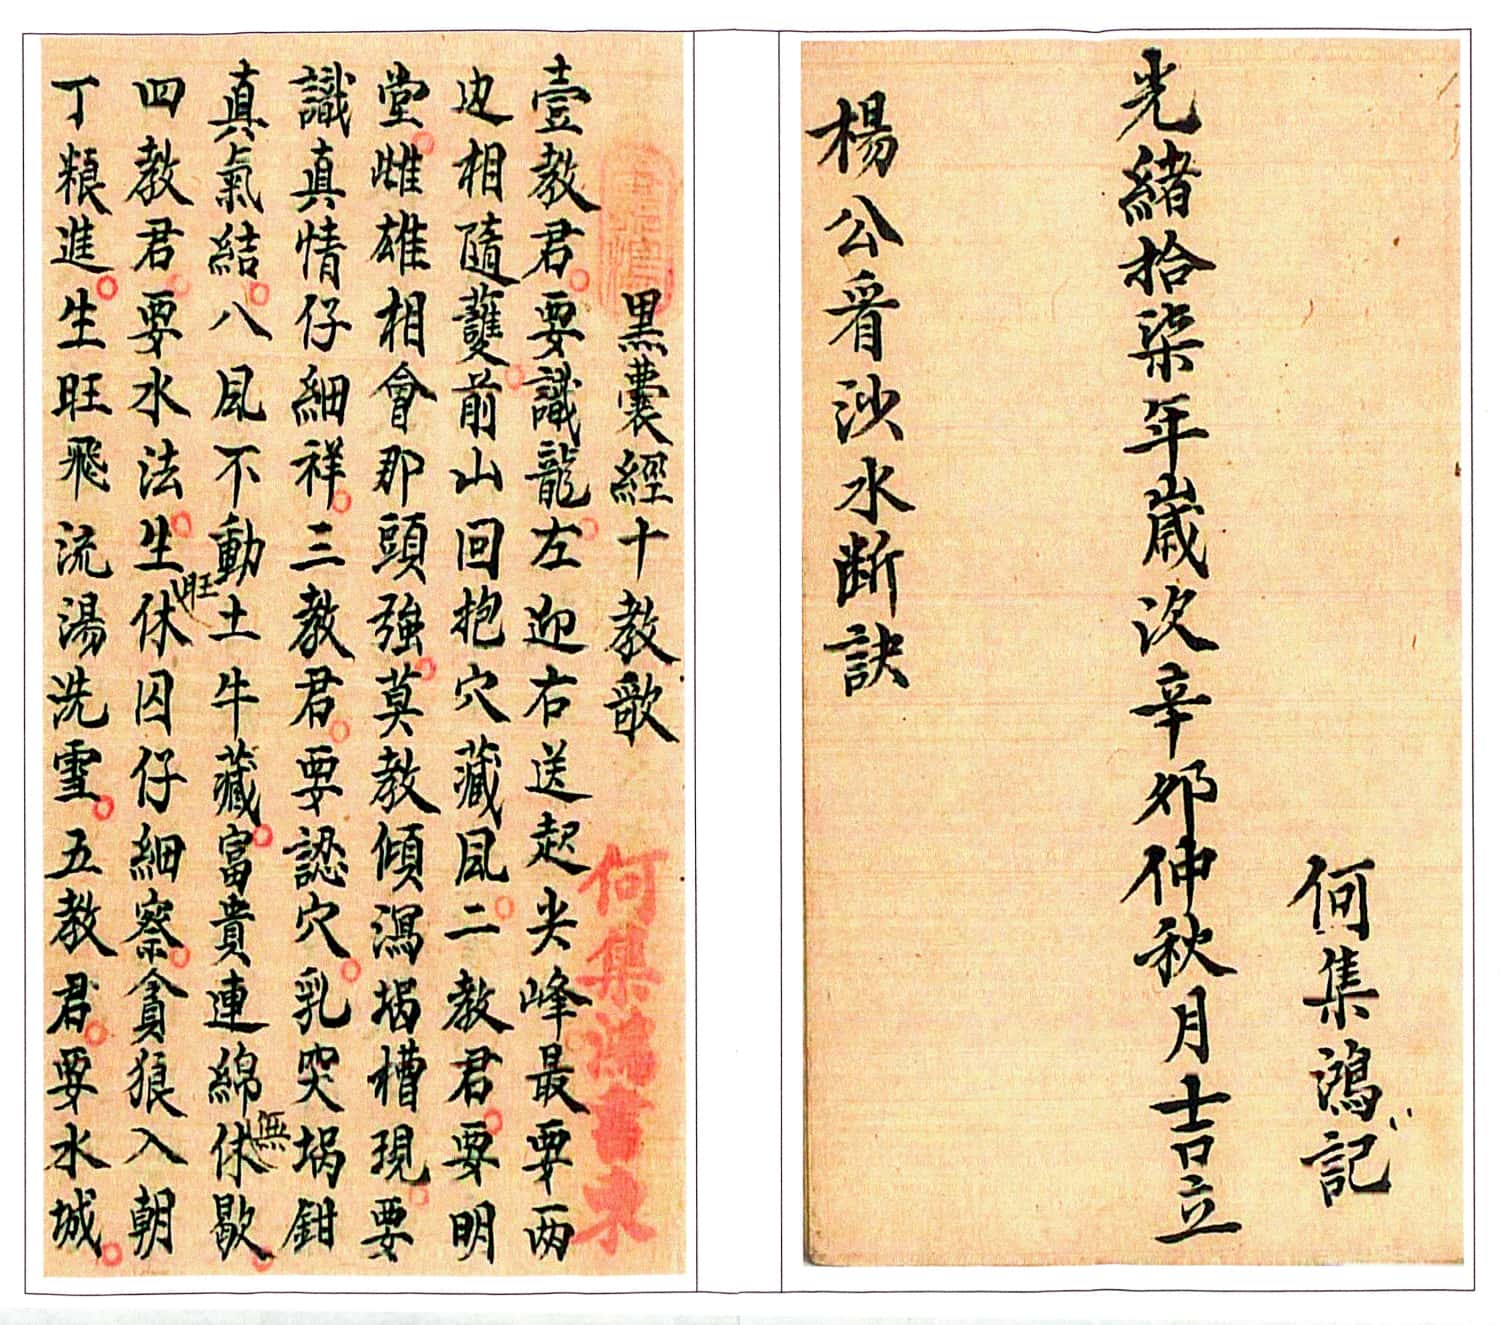 何集鴻記
光緒拾柒年歲次辛夘仲秋月吉立
楊公看沙水断訣
黒囊經十教歌
何集鴻書柬
壹教君要識龍左迎右送起尖峰最要两
边相隨䕶前山回抱穴藏風二教君要明
堂雌雄相會那頭強莫教傾瀉堝槽現要
識真情仔細祥三教君要認穴乳突堝鉗
真氣結八風不動土牛藏富貴連綿休歇
無
四教君要水法生休囚仔細察貪狼入朝
旺
丁粮進生旺飛流湯洗雪五教君要水城